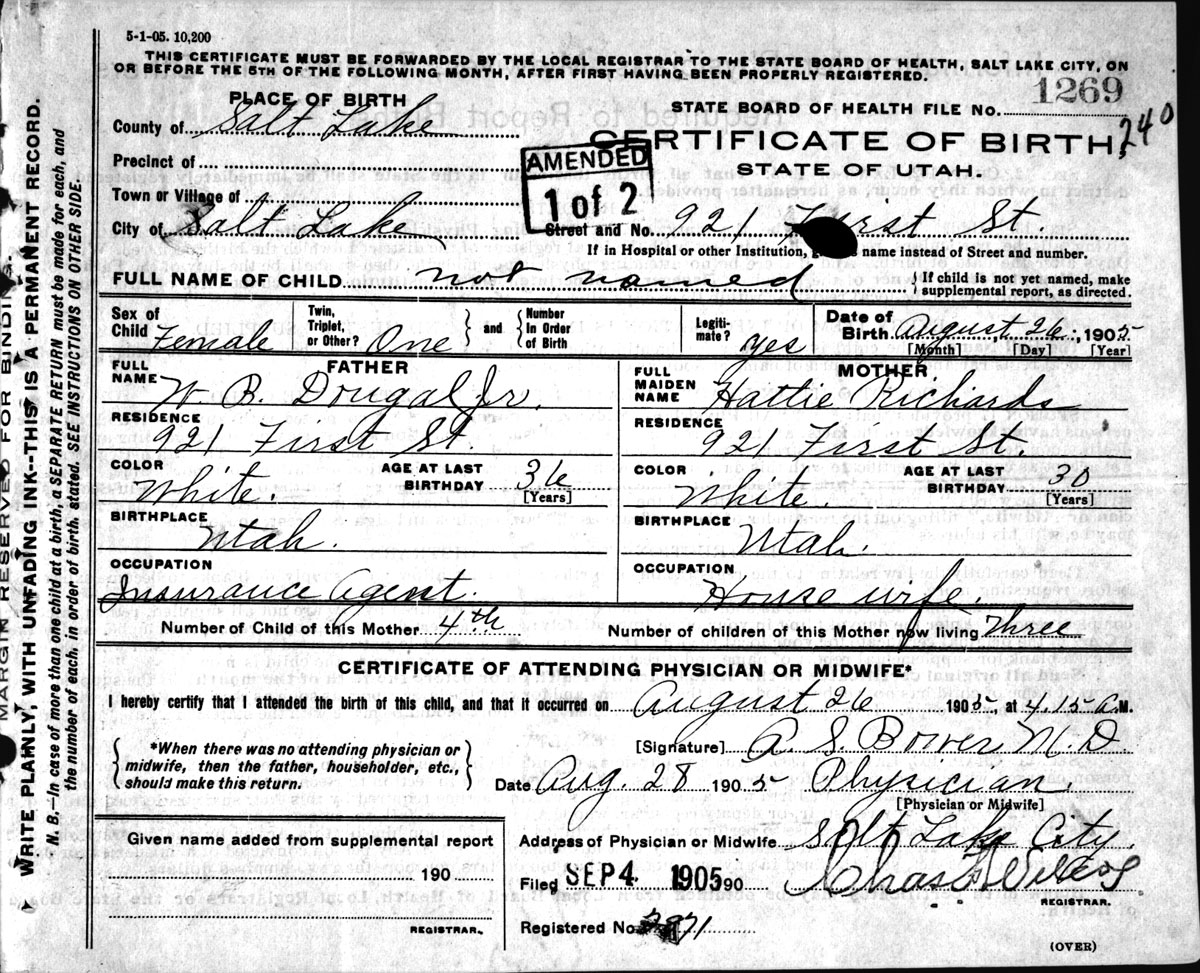 5-1-05. 10,200
THIS CERTIFICATE MUST BE FORWARDED BY THE LOCAL REGISTRAR TO THE STATE BOARD OF HEALTH, SALT LAKE CITY, ON
OR BEFORE THE 5TH OF THE FOLLOWING MONTH, AFTER FIRST HAVING BEEN PROPERLY REGISTERED.
PLACE OF BIRTH
STATE BOARD OF HEALTH FILE No. 1269
County of Salt Lake
CERTIFICATE OF BIRTH 240
STATE OF UTAH.
Precinct of
AMENDED
1 of 2
Town or Village of
City of Salt Lake Street and No. 921 First St.
If in Hospital or other Institution, name instead of Street and number.
FULL NAME OF CHILD not named { If child is not yet named, make
supplemental report, as directed.
Sex of Child Female
Twin, Triplet, or Other? One } and { Number In Order of Birth
Legiti-mate? yes
Date of Birth August 26, 1905
[Month] [Day] [Year]
FATHER
FULL NAME W. B. Dougal Jr.
RESIDENCE
921 First St.
COLOR White. AGE AT LAST BIRTHDAY 36
[Years]
BIRTHPLACE
Utah.
OCCUPATION
Insurance Agent.
MOTHER
FULL MAIDEN NAME Hattie Richards
RESIDENCE
921 First St.
COLOR White. AGE AT LAST BIRTHDAY 30
[Years]
BIRTHPLACE
Utah.
OCCUPATION
House wife
Number of Child of this Mother 4th Number of children of this Mother now living Three
CERTIFICATE OF ATTENDING PHYSICIAN OR MIDWIFE*
I hereby certify that I attended the birth of this child, and that it occurred on August 26 1905, at 4.15 A.M.
{ *When there was no attending physician or
midwife, then the father, householder, etc.,
should make this return. }
[Signature] A. S. Bower M.D
Date Aug. 28 1905 Physician.
[Physician or Midwife]
Given name added from supplemental report
190
REGISTRAR.
Address of Physician or Midwife Salt Lake City.
Filed SEP 4 1905 90 Chas. Wilcox
REGISTRAR.
Registered No.
(OVER)
MARGIN RESERVED FOR BINDING.
WRITE PLAINLY, WITH UNFADING INK--THIS IS A PERMANENT RECORD.
N. B.--In case of more than one child at a birth, a SEPARATE RETURN must be made for each, and
the number of each, in order of birth, stated. SEE INSTRUCTIONS ON OTHER SIDE.